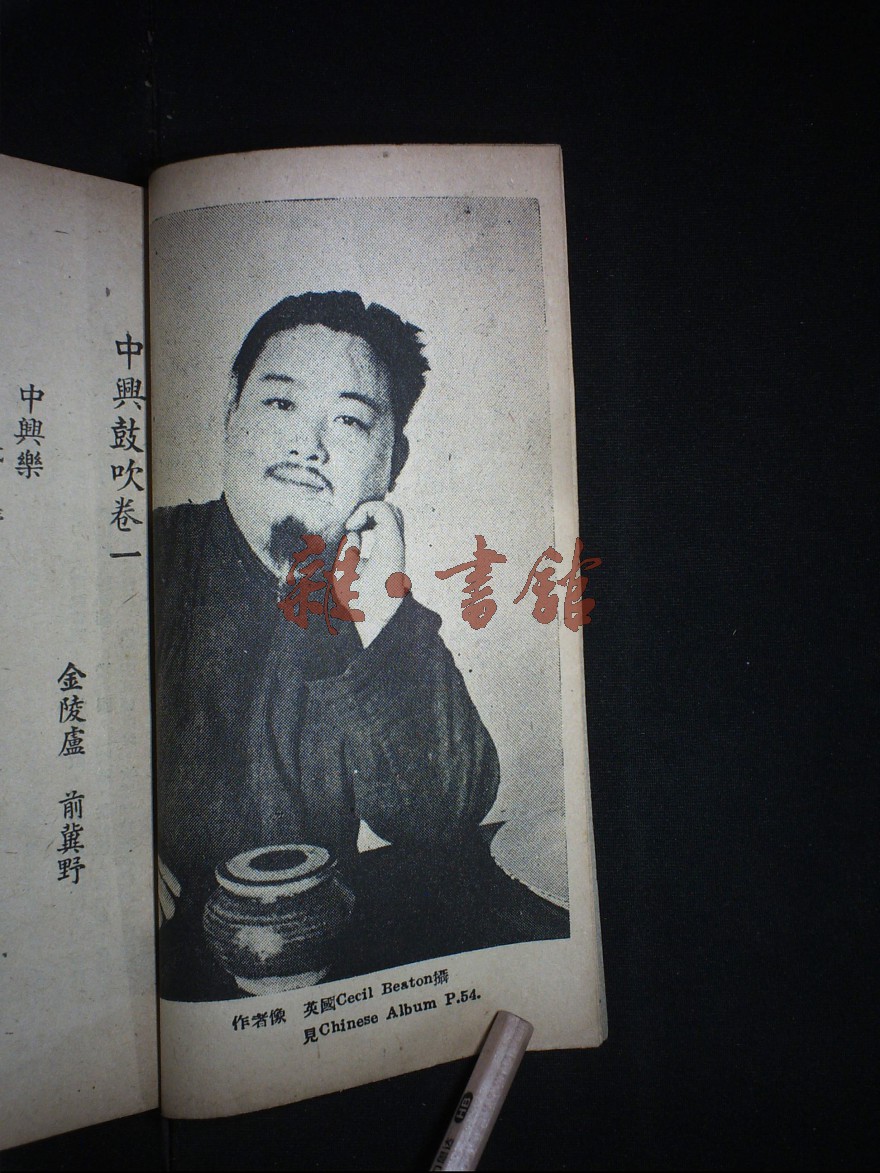 中興鼓吹卷一
金陵盧 前冀野
中興樂
作者像 英國Cecil Beaton攝
見Chinese Album P.54.
雜·書館
HB